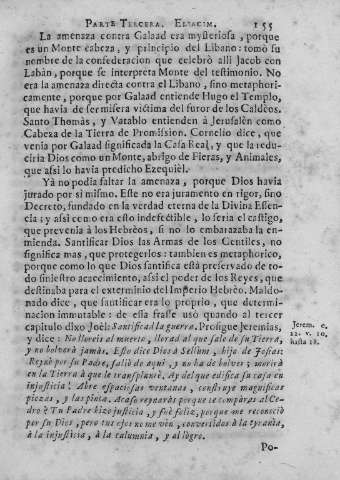 PARTE TERCERA. ELIACIM. 155
La amenaza contra Galaad era mysteriosa, porque
es un Monte cabeza, y principio del Libano: tomò su
nombre de la confederacion que celebrò alli Jacob con
Labàn, porque se interpreta Monte del testimonio. No
era la amenaza directa contra el Libano, sino metaphori-
camente, porque por Galaad entiende Hugo el Templo,
que havia de ser misera victima del furor de los Caldèos.
Santo Thomàs, y Vatablo entienden à Jerusalèn como
Cabeza de la Tierra de Promission. Cornelio dice, que
venia por Galaad significada la Casa Real, y que la redu-
ciria Dios como un Monte, abrigo de Fieras, y Animales,
que assi lo havia predicho Ezequièl.
Yà no podia faltar la amenaza, porque Dios havia
jurado por sì mismo. Este no era juramento en rigor, sino
Decreto, fundado en la verdad eterna de la Divina Essen-
cia: y assi como era esto indefectible, lo seria el castigo,
que prevenia à los Hebrèos, si no lo embarazaba la en-
mienda. Santificar Dios las Armas de los Gentiles, no
significa mas, que protegerlos: tambien es metaphorico,
porque como lo que Dios santifica està preservado de to-
do siniestro acaecimiento, assi el poder de los Reyes, que
destinaba para el exterminio del Imperio Hebrèo. Maldo-
nado dice, que santificar era lo proprio, que determi-
nacion immutable: de esta frasse usò quando al tercer
capitulo dixo Joèl: Santificad la guerra. Prosigue Jeremias,
y dice: No lloreis al muerto, llorad al que sale de su Tierra,
y no bolverà jamàs. Esto dice Dios à Sellùm, hijo de Josias:
Reynò por su Padre, saliò de aqui, y no ha de bolver; morirà
en la Tierra à que le transplantè. Ay del que edifica su casa en
injusticia! Abre espaciosas ventanas, construye magnificas
piezas, y las pinta. Acaso reynaràs porque te comparas al Ce-
dro? Tu Padre hizo justicia, y fuè feliz, porque me reconociò
por su Dios, pero tus ojos no me vèn, convertidos à la tyranìa,
à la injusticia, à la calumnia, y al lògro.
Jerem. c.
22. v. 10.
hasta 18.
Po-